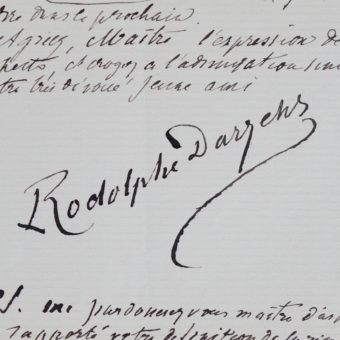 dans le prochain
Agréez, Maître l'expression de
et croyez à l'admiration
très dévoué jeune ami
Rodolphe Darzens
P.S. me pardonnez vous maître d'
rapporté votre de la